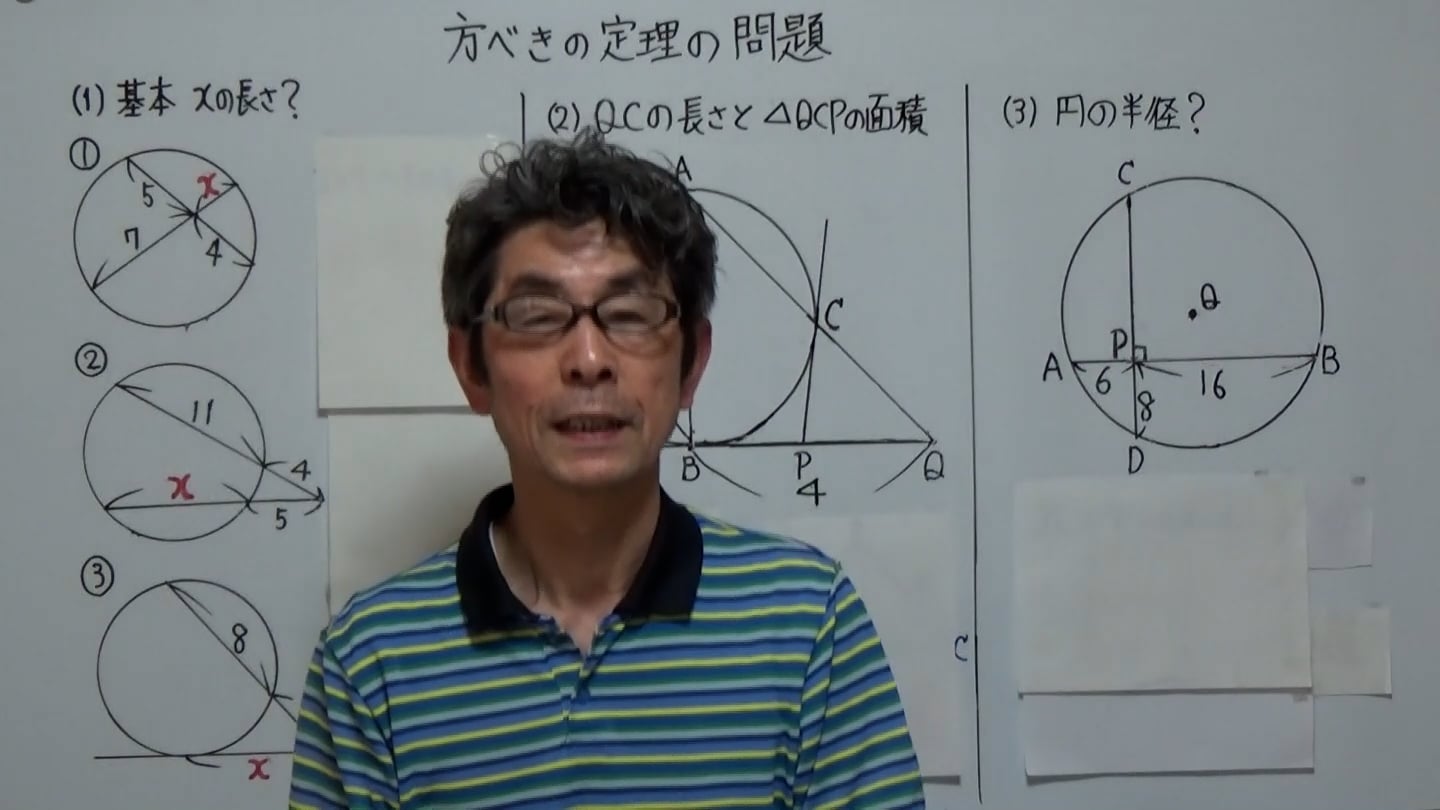 方べきの定理の問題
(1) 基本 xの長さ?
①
5
x
7
4
②
11
x
4
5
③
8
x
(2) QCの長さと△QCPの面積
A
C
B
P
Q
4
C
(3) 円の半径?
C
θ
P
A
B
6
16
8
D